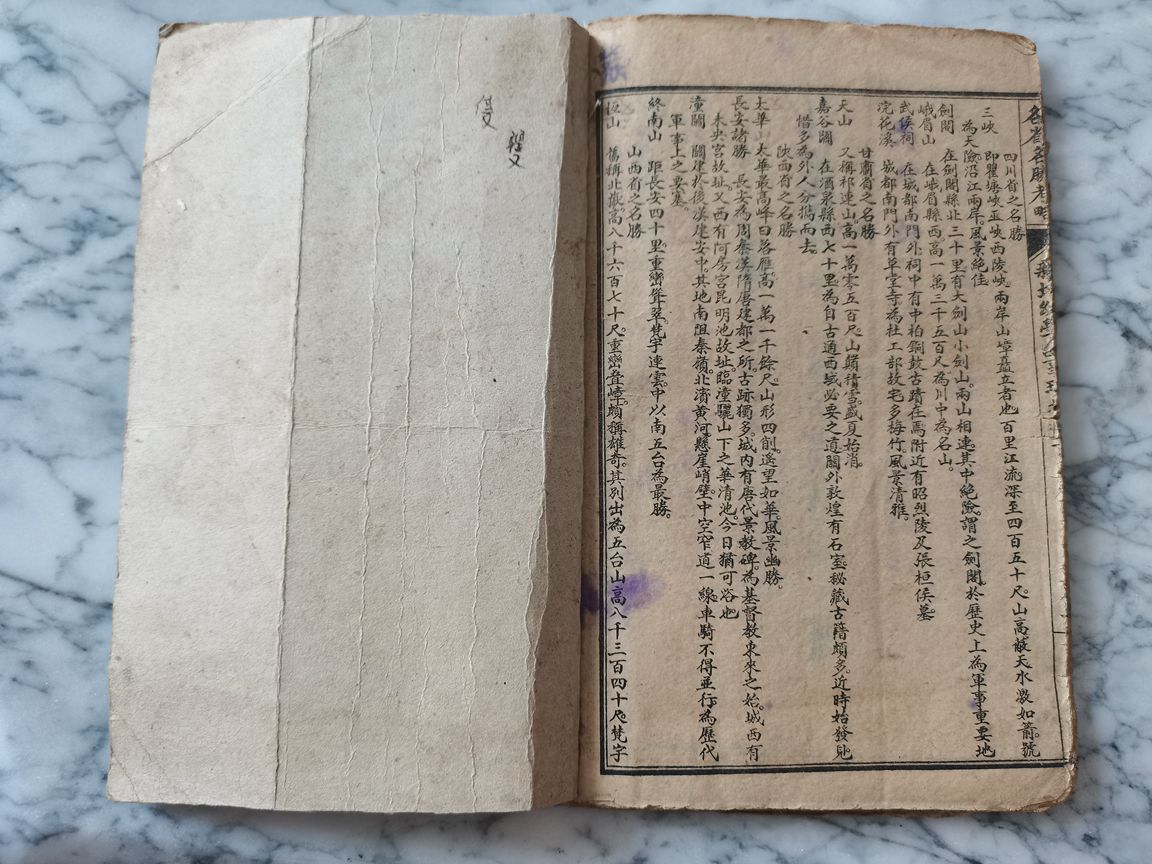 各省名勝考略
四川省之名勝
三峽 即瞿塘峽巫峽西陵峽。兩岸山嶂矗立者也。百里江流。深至四百五十尺。山高蔽天。水激如箭。號
為天險。沿江兩岸。風景絕佳。
劍閣 在劍閣縣北三十里。有大劍山小劍山。兩山相連。其中絕險。謂之劍閣。於歷史上為軍事重要地
峨眉山 在峨眉縣西。高一萬三千五百尺。為川中名山。
武侯祠 在城都南門外。祠中有中柏銅鼓古蹟在焉。附近有昭烈陵及張桓侯墓。
浣花溪 城都南門外有草堂寺。為杜工部故宅。多梅竹。風景清雅。
甘肅省之名勝
天山 又稱祁連山。高一萬零五百尺。山巔積雪。盛夏始消。
嘉谷關 在酒泉縣西七十里。為自古通西域必要之道。關外敦煌有石室。秘藏古籍頗多。近時始發見
惜多為外人分攜而去。
陝西省之名勝
太華山 太華最高峰曰落雁。高一萬一千餘尺。山形四削。遙望如華。風景幽勝。
長安諸勝 長安為周秦漢隋唐建都之所。古跡獨多。城內有唐代景教碑。為基督教東來之始。城西有
未央宮故址。又西有阿房宮昆明池故址。臨潼驪山下之華清池。今日猶可浴也
潼關 關建於後漢建安中。其地南阻秦嶺。北濱黃河。懸崖峭壁。中空窄道一線。車騎不得並行。為歷代
軍事上之要塞。
終南山 距長安四十里。重巒聳翠。梵宇連雲。中以南五台為最勝。
山西省之名勝
恆山 舊稱北嶽。高八千六百七十尺。重巒疊嶂。頗稱雄奇。其別出為五台山。高八千三百四十尺。梵宇